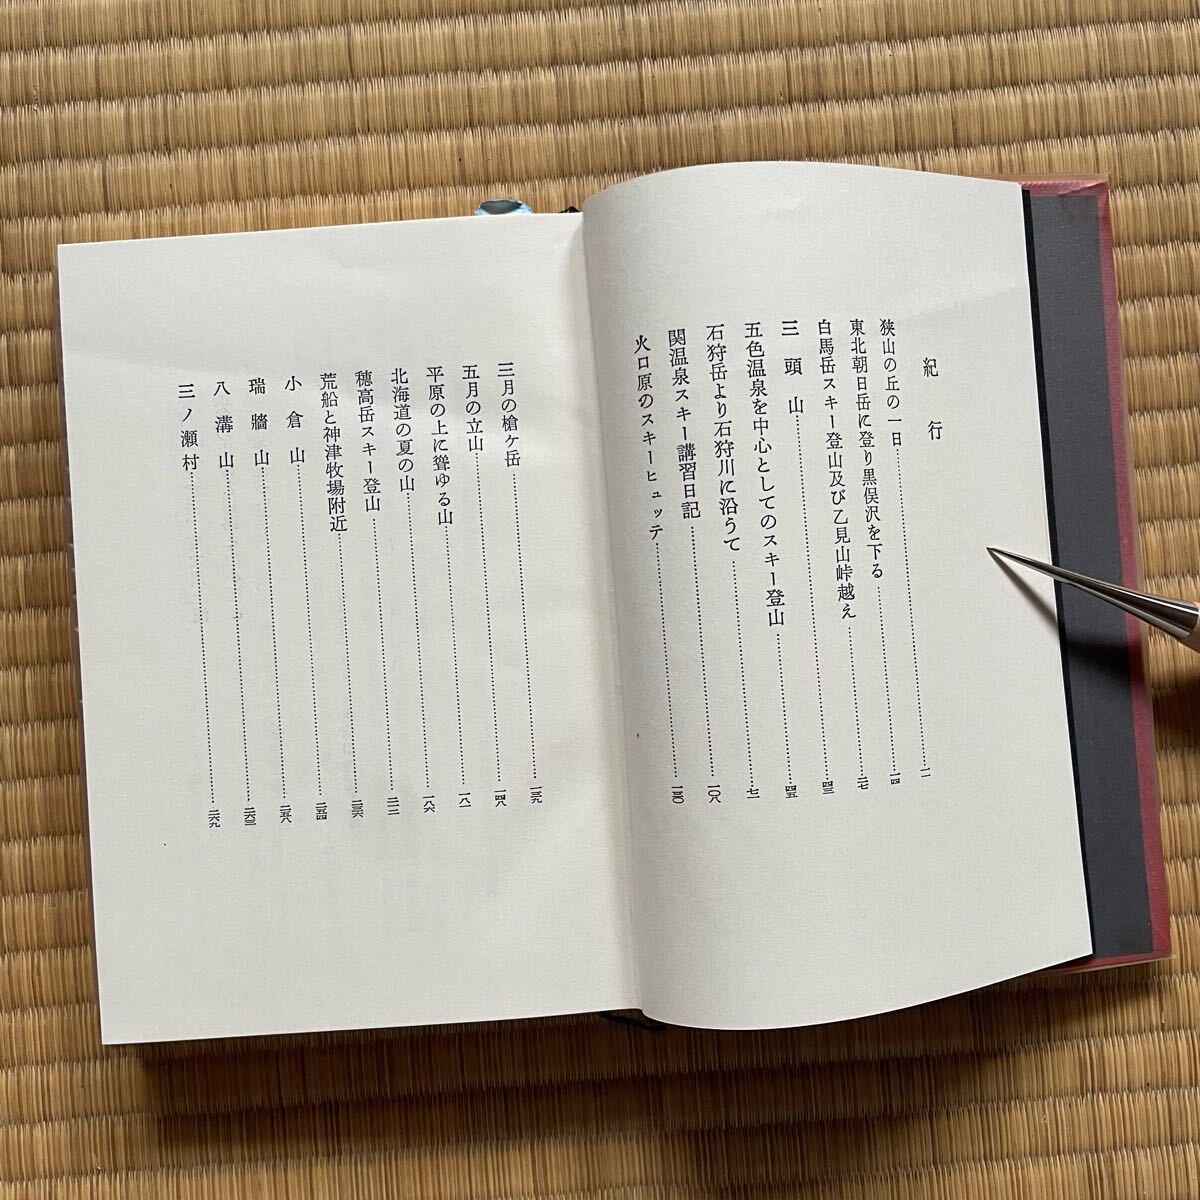 紀行
狭山の丘の一日
東北朝日岳に登り黒俣沢を下る……一四
白馬岳スキー登山及び乙見山峠越え……二七
三頭山……四三
五色温泉を中心としてのスキー登山……四五
石狩岳より石狩川に沿うて……七一
関温泉スキー講習日記……一〇八
火口原のスキーヒュッテ……一三〇
三月の槍ヶ岳……一三九
五月の立山……一四八
平原の上に聳ゆる山……一八一
北海道の夏の山……一八六
穂高岳スキー登山……二一二
荒船と神津牧場附近……二三六
小倉山……二五四
瑞牆山……二五八
八溝山……二六三
三ノ瀬村……二六九